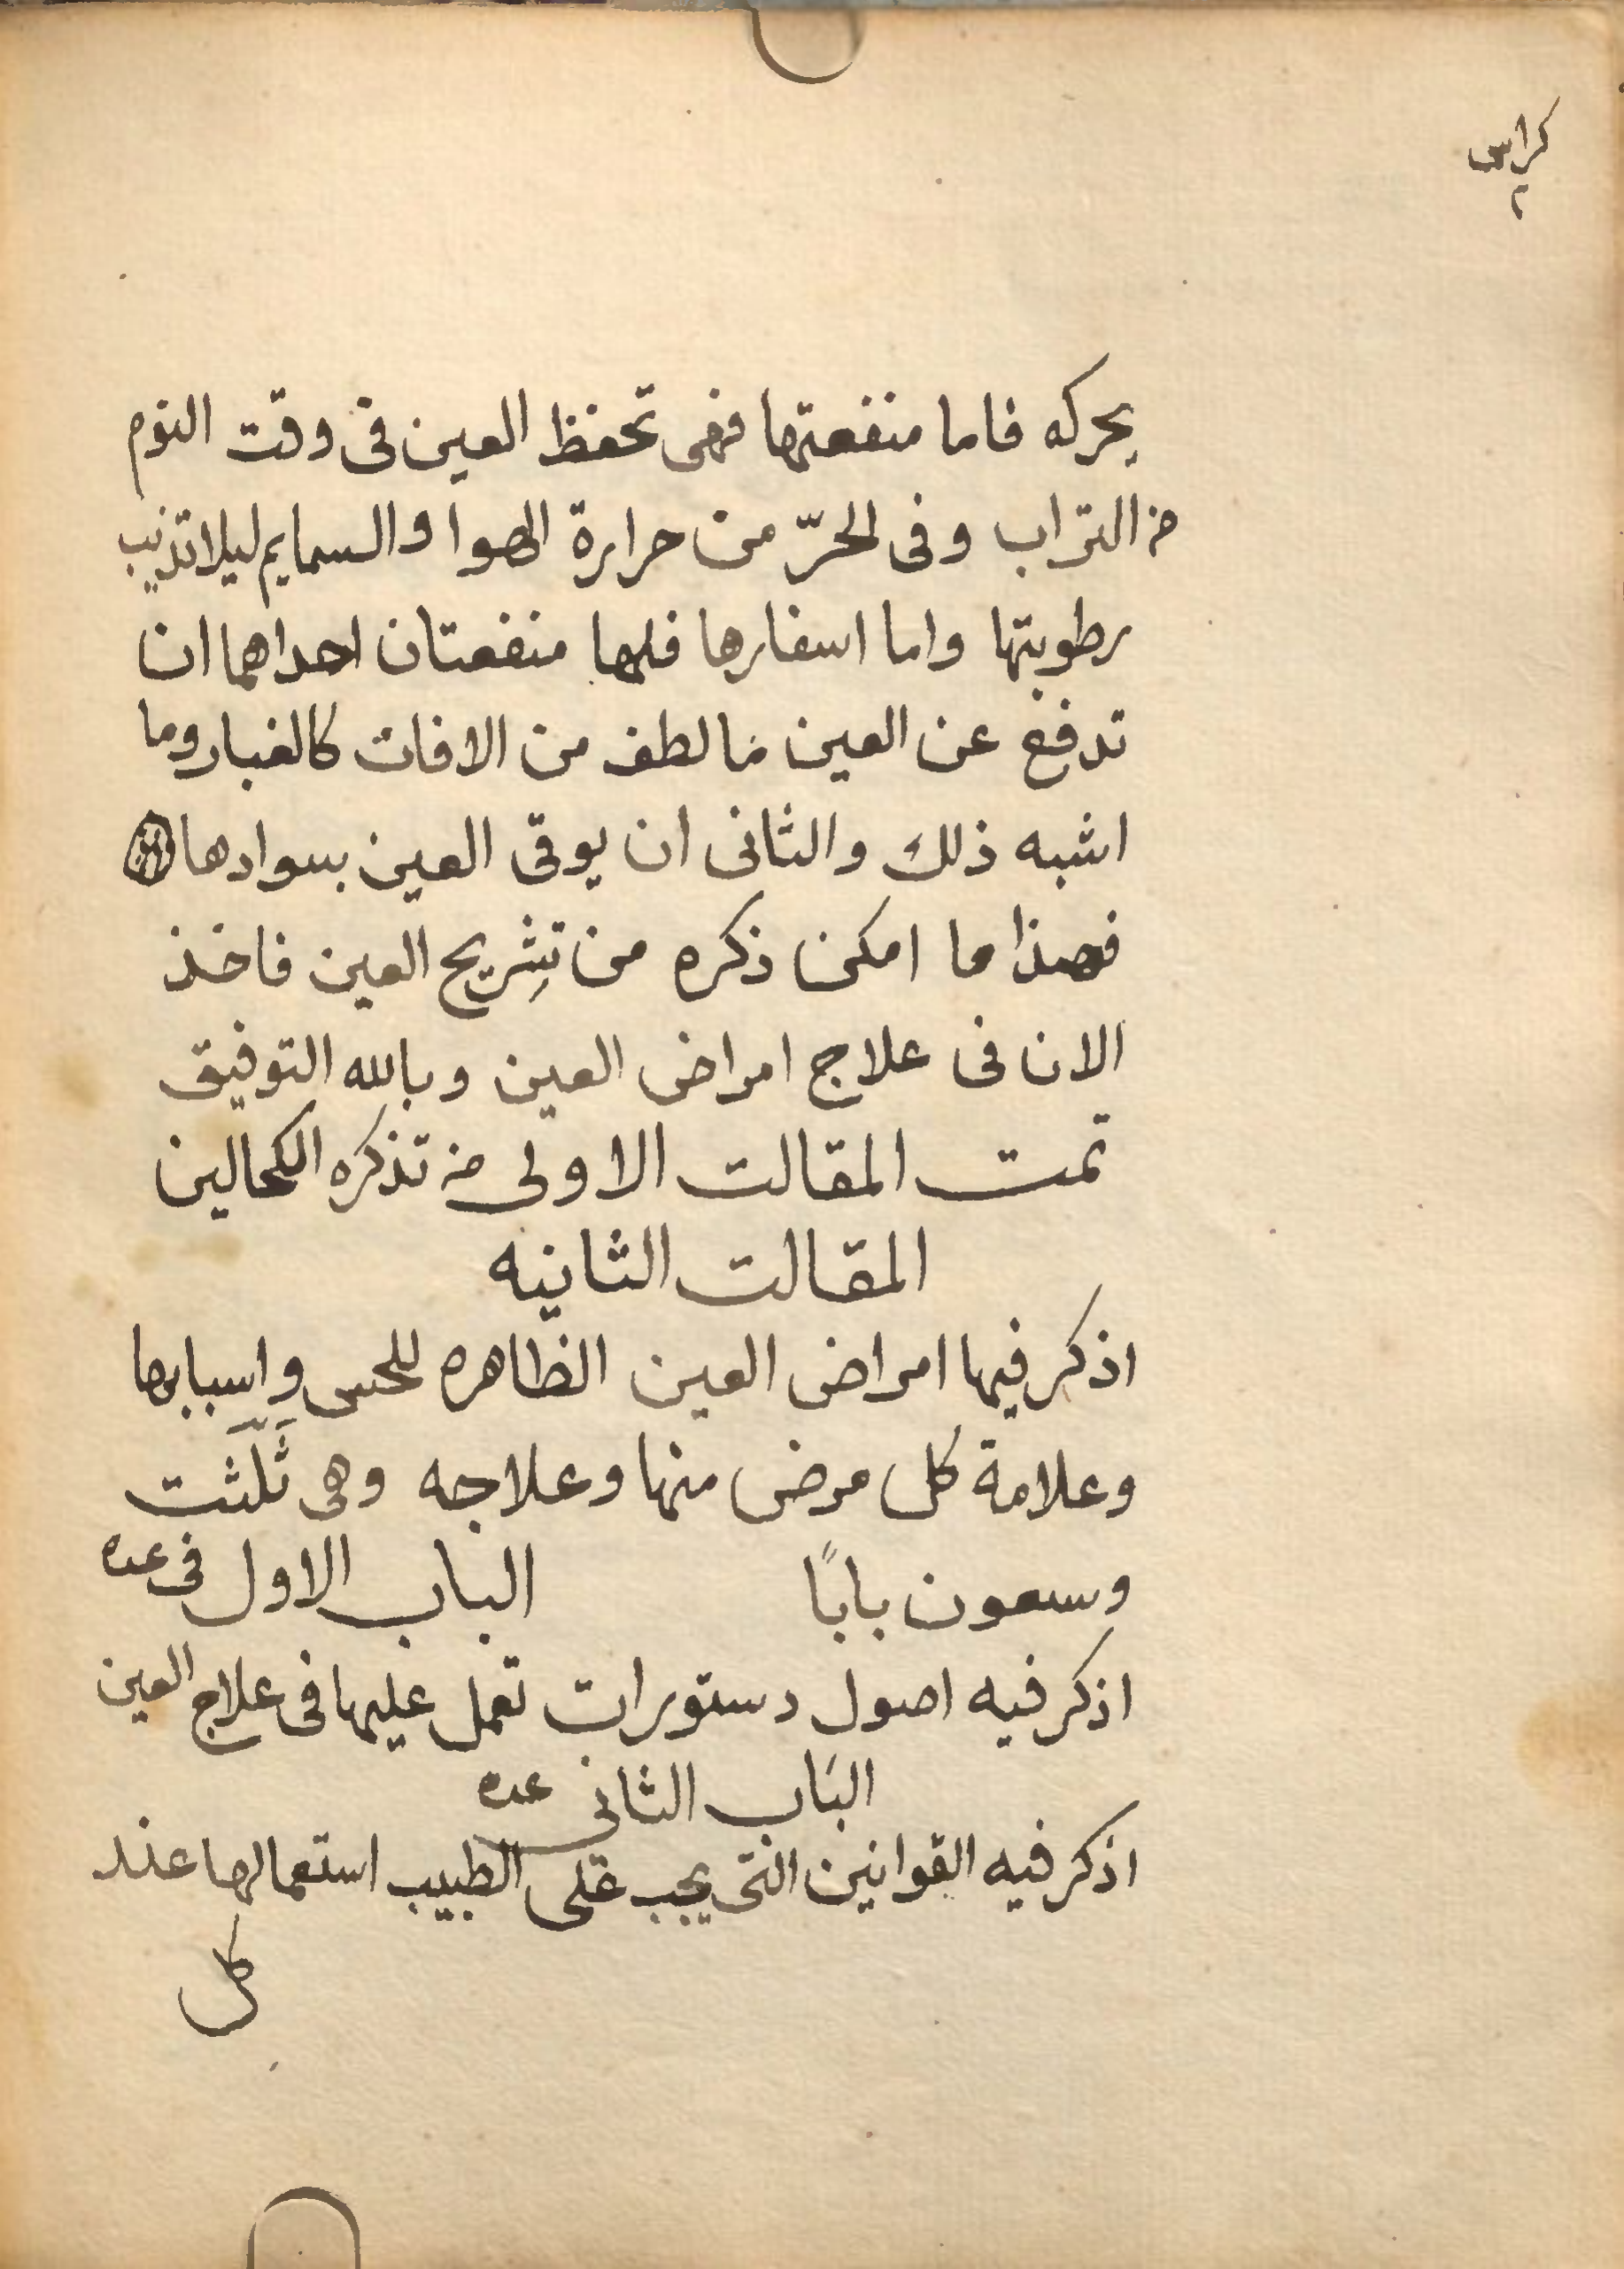 كراس
٢
يحركه فاما منفعتها فهى تحفظ العين فى وقت النوم
من التراب وفى الحرّ من حرارة الهوا والسمايم ليلا تذيب
رطوبتها واما اسفارها فلها منفعتان احداهما ان
تدفع عن العين مالطف من الافات كالغبار وما
اشبه ذلك والثانى ان يوقى العين بسوادها
فهذا ما امكن ذكره من تشِريح العين فاخذ
الان فى علاج امراض العين وبالله التوفيق
تمت المقالت الاولى من تذكره الكحالين
المقالت الثانيه
اذكر فيها امراض العين الظاهره للحس واسبابها
وعلامة كل مرض منها وعلاجه وهى ثَلّثت
وسعون بابًا الباب الاول فى عده
اذكر فيه اصول دستورات تعمل عليها فى علاج العين
البَاب الثانى عده
اذكر فيه القوانين التى يجب على الطبيب استعمالها عند
كل